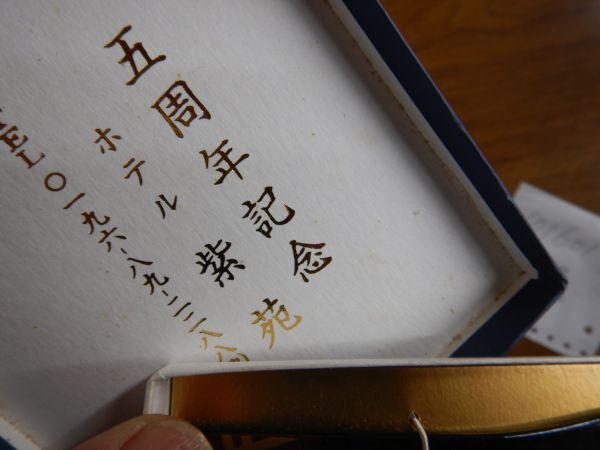 五周年記念
ホテル 紫苑
TEL〇一九六-八九-二二八八